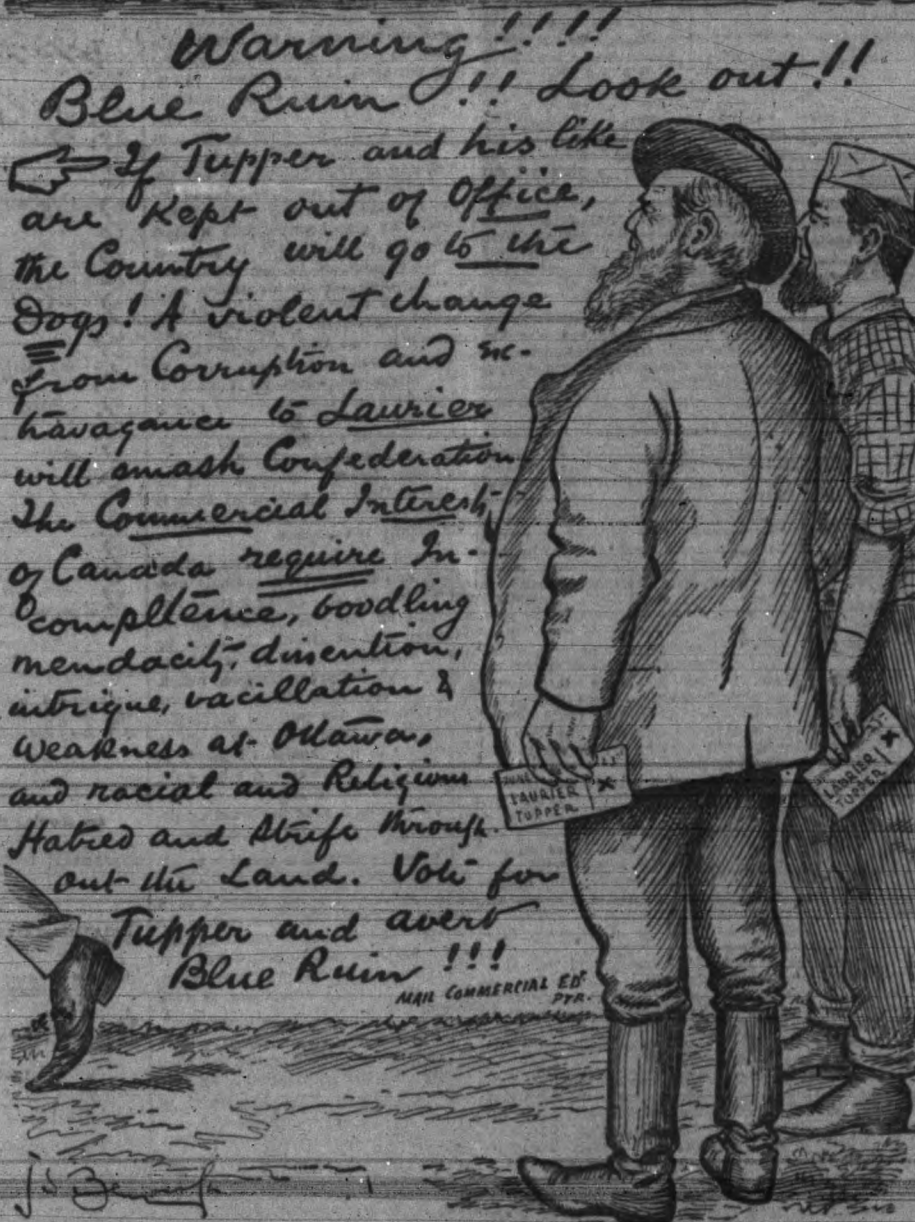 Warning !!!!
Blue Ruin !! Look out !!
If Tupper and his like
are kept out of Office,
the Country will go to the
Dogs! A violent change
from Corruption and ex-
travagance to Laurier
will smash Confederation
The Commercial Interests
of Canada require In-
compltence, boodling
mendacity, dissention,
intrigue, vacillation &
weakness at Ottawa,
and racial and Religious
Hatred and Strife through-
out the Land. Vote for
Tupper and avert
Blue Ruin !!!
MAIL COMMERCIAL EDR
PTR.
LAURIER X
TUPPER
LAURIER X
TUPPER
J W Bengough